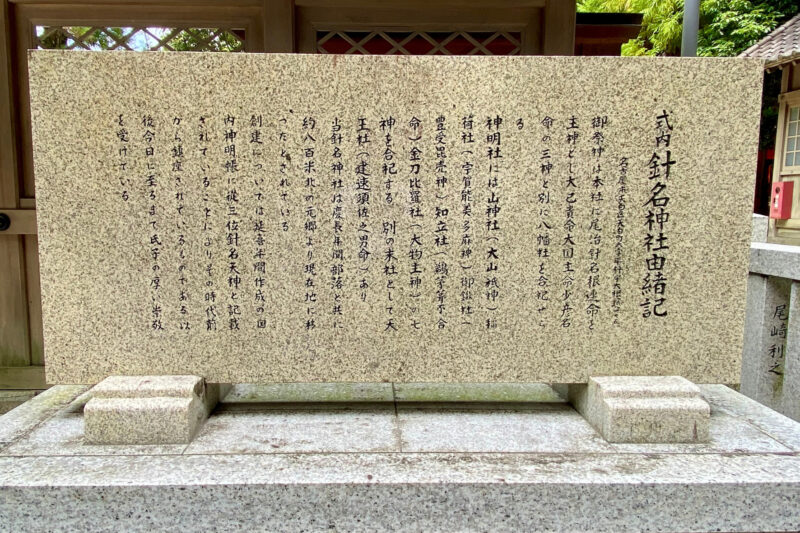 式内 針名神社由緒記
御祭神は本社に尾治針名根連命と
主神とし大己貴命大国主命少彦名
命の三神と別に八幡社を合祀せら
る
神明社には山神社(大山祇神)稲
荷社(宇賀能美多麻神)御鍬社(
豊受毘売神)知立社(鵜茅葺不合
命)金刀比羅社(大物主神)の七
神を合祀する 別の末社として天
王社(建速須佐之男命)あり
当針名神社は慶長年間部落と共に
約八百米北の元郷より現在地に移
ったとされている
創建については延喜年間作成の国
内神明帳に従三位針名天神と記載
されていることによりその時代前
から鎮座されているものである以
後今日に至るまで氏子の厚い崇敬
を受けている
尾崎利之